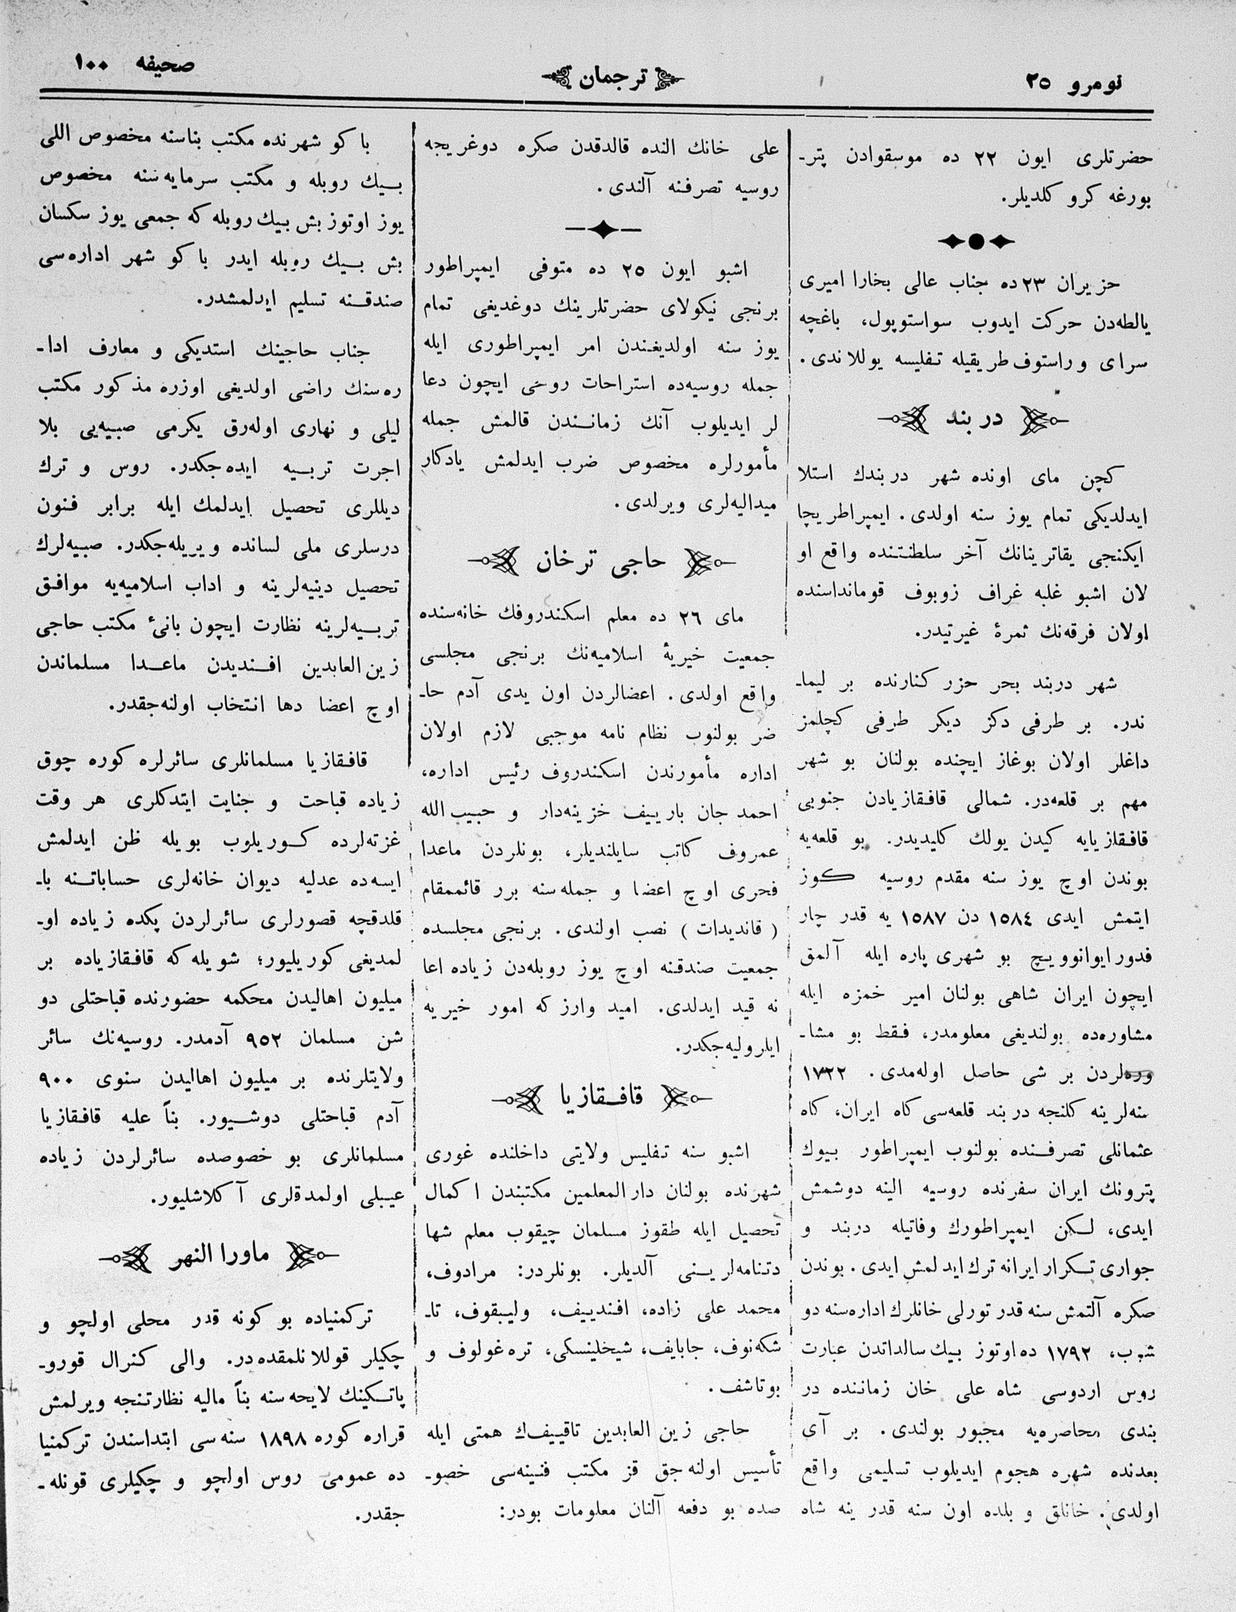 نومرو ٢٥
ترجمان
صحیفه ١٠٠
حضرتلری ایون ٢٢ ده موسقوادن پتر-
بورغه کرو کلدیلر.
حزیران ٢٣ده جناب عالی بخارا امیری
یالطه‌دن حرکت ایدوب سواستوپول، باغچه
سرای و راستوف طریقیله تفلیسه یوللاندی.
دربند
کچن مای اونده شهر دربندك استلا
ایدلدیکی تمام یوز سنه اولدی. ایمپراطریچا
ایکنجی یقاترینانك آخر سلطنتنده واقع او
لان اشبو غلبه غراف زوبوف قومانداسنده
اولان فرقه‌نك ثمرهٔ غیرتیدر.
شهر دربند بحر حزر کنارنده بر لیما-
ندر. بر طرفی دکز دیکر طرفی کچلمز
داغلر اولان بوغاز ایچنده بولنان بو شهر
مهم بر قلعه‌در. شمالی قافقازیادن جنوبی
قافقازیایه کیدن یولك کلیدیدر. بو قلعه‌یه
بوندن اوچ یوز سنه مقدم روسیه کوز
ایتمش ایدی ١٥٨٤ دن ١٥٨٧ یه قدر چار
فدور ایوانوویچ بو شهری پاره ایله آلمق
ایچون ایران شاهی بولنان امیر خمزه ایله
مشاوره‌ده بولندیغی معلومدر، فقط بو مشا-
وره‌لردن بر شی حاصل اوله‌مدی. ١٧٢٢
سنه‌لرینه کلنجه دربند قلعه‌سی کاه ایران، کاه
عثمانلی تصرفنده بولنوب ایمپراطور بیوك
پترونك ایران سفرنده روسیه الینه دوشمش
ایدی، لکن ایمپراطورك وفاتیله دربند و
جواری تکرار ایرانه ترك ایدلمش ایدی. بوندن
صکره آلتمش سنه قدر تورلی خانلرك اداره‌سنه دو
شوب، ١٧٩٢ ده اوتوز بیك سالداتدن عبارت
روس اردوسی شاه علی خان زماننده در
بندی محاصره‌یه مجبور بولندی. بر آی
بعدنده شهره هجوم ایدیلوب تسلیمی واقع
اولدی. خانلق و بلده اون سنه قدر ینه شاه
علی خانك النده قالدقدن صکره دوغریجه
روسیه تصرفنه آلندی.
اشبو ایون ٢٥ ده متوفی ایمپراطور
برنجی نیکولای حضرتلرینك دوغدیغی تمام
یوز سنه اولدیغندن امر ایمپراطوری ایله
جمله روسیه‌ده استراحات روحی ایچون دعا
لر ایدیلوب آنك زمانندن قالمش جمله
مأمورلره مخصوص ضرب ایدلمش یادکار
میدالیه‌لری ویرلدی.
حاجی ترخان
مای ٢٦ ده معلم اسکندروفك خانه‌سنده
جمعیت خیریهٔ اسلامیه‌نك برنجی مجلسی
واقع اولدی. اعضالردن اون یدی آدم حا-
ضر بولنوب نظام نامه موجبی لازم اولان
اداره مأمورندن اسکندروف رئیس اداره،
احمد جان بارییف خزینه‌دار و حبیب الله
عمروف کاتب سایلندیلر، بونلردن ماعدا
فخری اوچ اعضا و جمله‌سنه برر قائممقام
( قاندیدات ) نصب اولندی. برنجی مجلسده
جمعیت صندقنه اوچ یوز روبله‌دن زیاده اعا
نه قید ایدلدی. امید وارز که امور خیریه
ایلرولیه‌جکدر.
قافقازیا
اشبو سنه تفلیس ولایتی داخلنده غوری
شهرنده بولنان دارالمعلمین مکتبندن اکمال
تحصیل ایله طقوز مسلمان چیقوب معلم شها
دتنامه‌لرینی آلدیلر. بونلردر: مرادوف،
محمد علی زاده، افندییف، ولیبقوف، تا-
شکه‌نوف، جابایف، شیخلینسکی، تره‌غولوف و
بوتاشف.
حاجی زین العابدین تاقییفك همتی ایله
تأسیس اولنه‌جق قز مکتب فنینه‌سی خصو-
صده بو دفعه آلنان معلومات بودر:
باکو شهرنده مکتب بناسنه مخصوص اللی
بیك روبله و مکتب سرمایه‌سنه مخصوص
یوز اوتوز بش بیك روبله که جمعی یوز سکسان
بش بیك روبله ایدر باکو شهر اداره‌سی
صندقنه تسلیم ایدلمشدر.
جناب حاجینك استدیکی و معارف ادا-
ره‌سنك راضی اولدیغی اوزره مذکور مکتب
لیلی و نهاری اوله‌رق یکرمی صبیه‌یی بلا
اجرت تربیه ایده‌جکدر. روس و ترك
دیللری تحصیل ایدلمك ایله برابر فنون
درسلری ملی لسانده ویریله‌جکدر. صبیه‌لرك
تحصیل دینیه‌لرینه و اداب اسلامیه‌یه موافق
تربیه‌لرینه نظارت ایچون بانیٔ مکتب حاجی
زین العابدین افندیدن ماعدا مسلماندن
اوچ اعضا دها انتخاب اولنه‌جقدر.
قافقازیا مسلمانلری سائرلره کوره چوق
زیاده قباحت و جنایت ایتدکلری هر وقت
غزته‌لرده کوریلوب بویله ظن ایدلمش
ایسه‌ده عدلیه دیوان خانه‌لری حساباتنه با-
قلدقچه قصورلری سائرلردن پکده زیاده او-
لمدیغی کوریلیور؛ شویله که قافقازیاده بر
میلیون اهالیدن محکمه حضورنده قباحتلی دو
شن مسلمان ٩٥٢ آدمدر. روسیه‌نك سائر
ولایتلرنده بر میلیون اهالیدن سنوی ٩٠٠
آدم قباحتلی دوشیور. بناً علیه قافقازیا
مسلمانلری بو خصوصده سائرلردن زیاده
عیبلی اولمدقلری آکلاشلیور.
ماورا النهر
ترکمنیاده بو کونه قدر محلی اولچو و
چکیلر قوللانلمقده‌در. والی کنرال قورو-
پاتکینك لایحه‌سنه بناً مالیه نظارتنجه ویرلمش
قراره کوره ١٨٩٨ سنه‌سی ابتداسندن ترکمنیا
ده عمومی روس اولچو و چکیلری قونله-
جقدر.